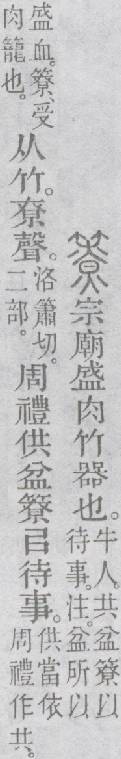 簝宗廟盛肉竹器也。牛人。共盆簝以待事。注。盆所以
盛血。簝、受肉籠也。从竹。尞聲。洛簫切。二部。周禮供盆簝㠯待事。供當依周禮作共。